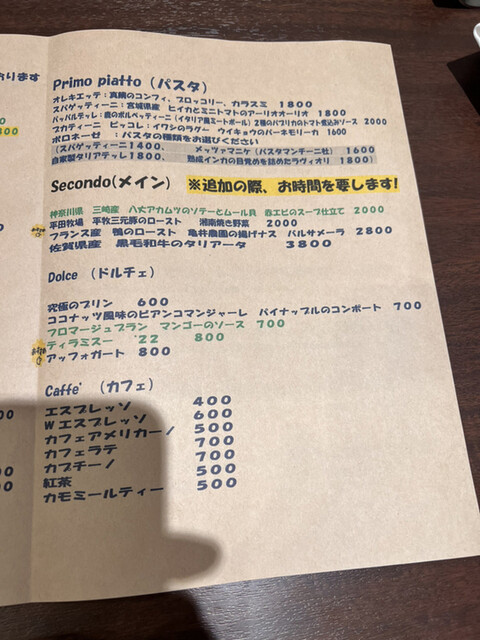 おります
Primo piatto (パスタ)
オレキエッテ:真鯛のコンフィ、ブロッコリー、カラスミ 1800
スパゲッティーニ:宮城県産 ヒイカとミニトマトのアーリオオーリオ 1800
パッパルデッレ:鹿のポルペッティーニ(イタリア風ミートボール)2種のパプリカのトマト煮込みソース 2000
ブカティーニ ピッコレ:イワシのラグー ウイキョウのバーネモリーカ 1600
ボロネーゼ :パスタの種類をお選びください
(スパゲッティーニ1400、 メッツァマニケ(パスタマンチーニ社) 1600
自家製タリアテッレ1800、 熟成インカの目覚めを詰めたラヴィオリ 1800)
Secondo(メイン) ※追加の際、お時間を要します!
神奈川県 三崎産 八丈アカムツのソテーとムール貝 赤エビのスープ仕立て 2000
平田牧場 平牧三元豚のロースト 湘南焼き野菜 2000
フランス産 鴨のロースト 亀井農園の揚げナス バルサメーラ 2800
佐賀県産 黒毛和牛のタリアータ 3800
Dolce (ドルチェ)
究極のプリン 600
ココナッツ風味のビアンコマンジャーレ パイナップルのコンポート 700
フロマージュブラン マンゴーのソース 700
ティラミスー '22 800
アッフォガート 800
Caffe' (カフェ)
エスプレッソ 400
Wエスプレッソ 600
カフェアメリカーノ 500
カフェラテ 700
カプチーノ 700
紅茶 500
カモミールティー 500